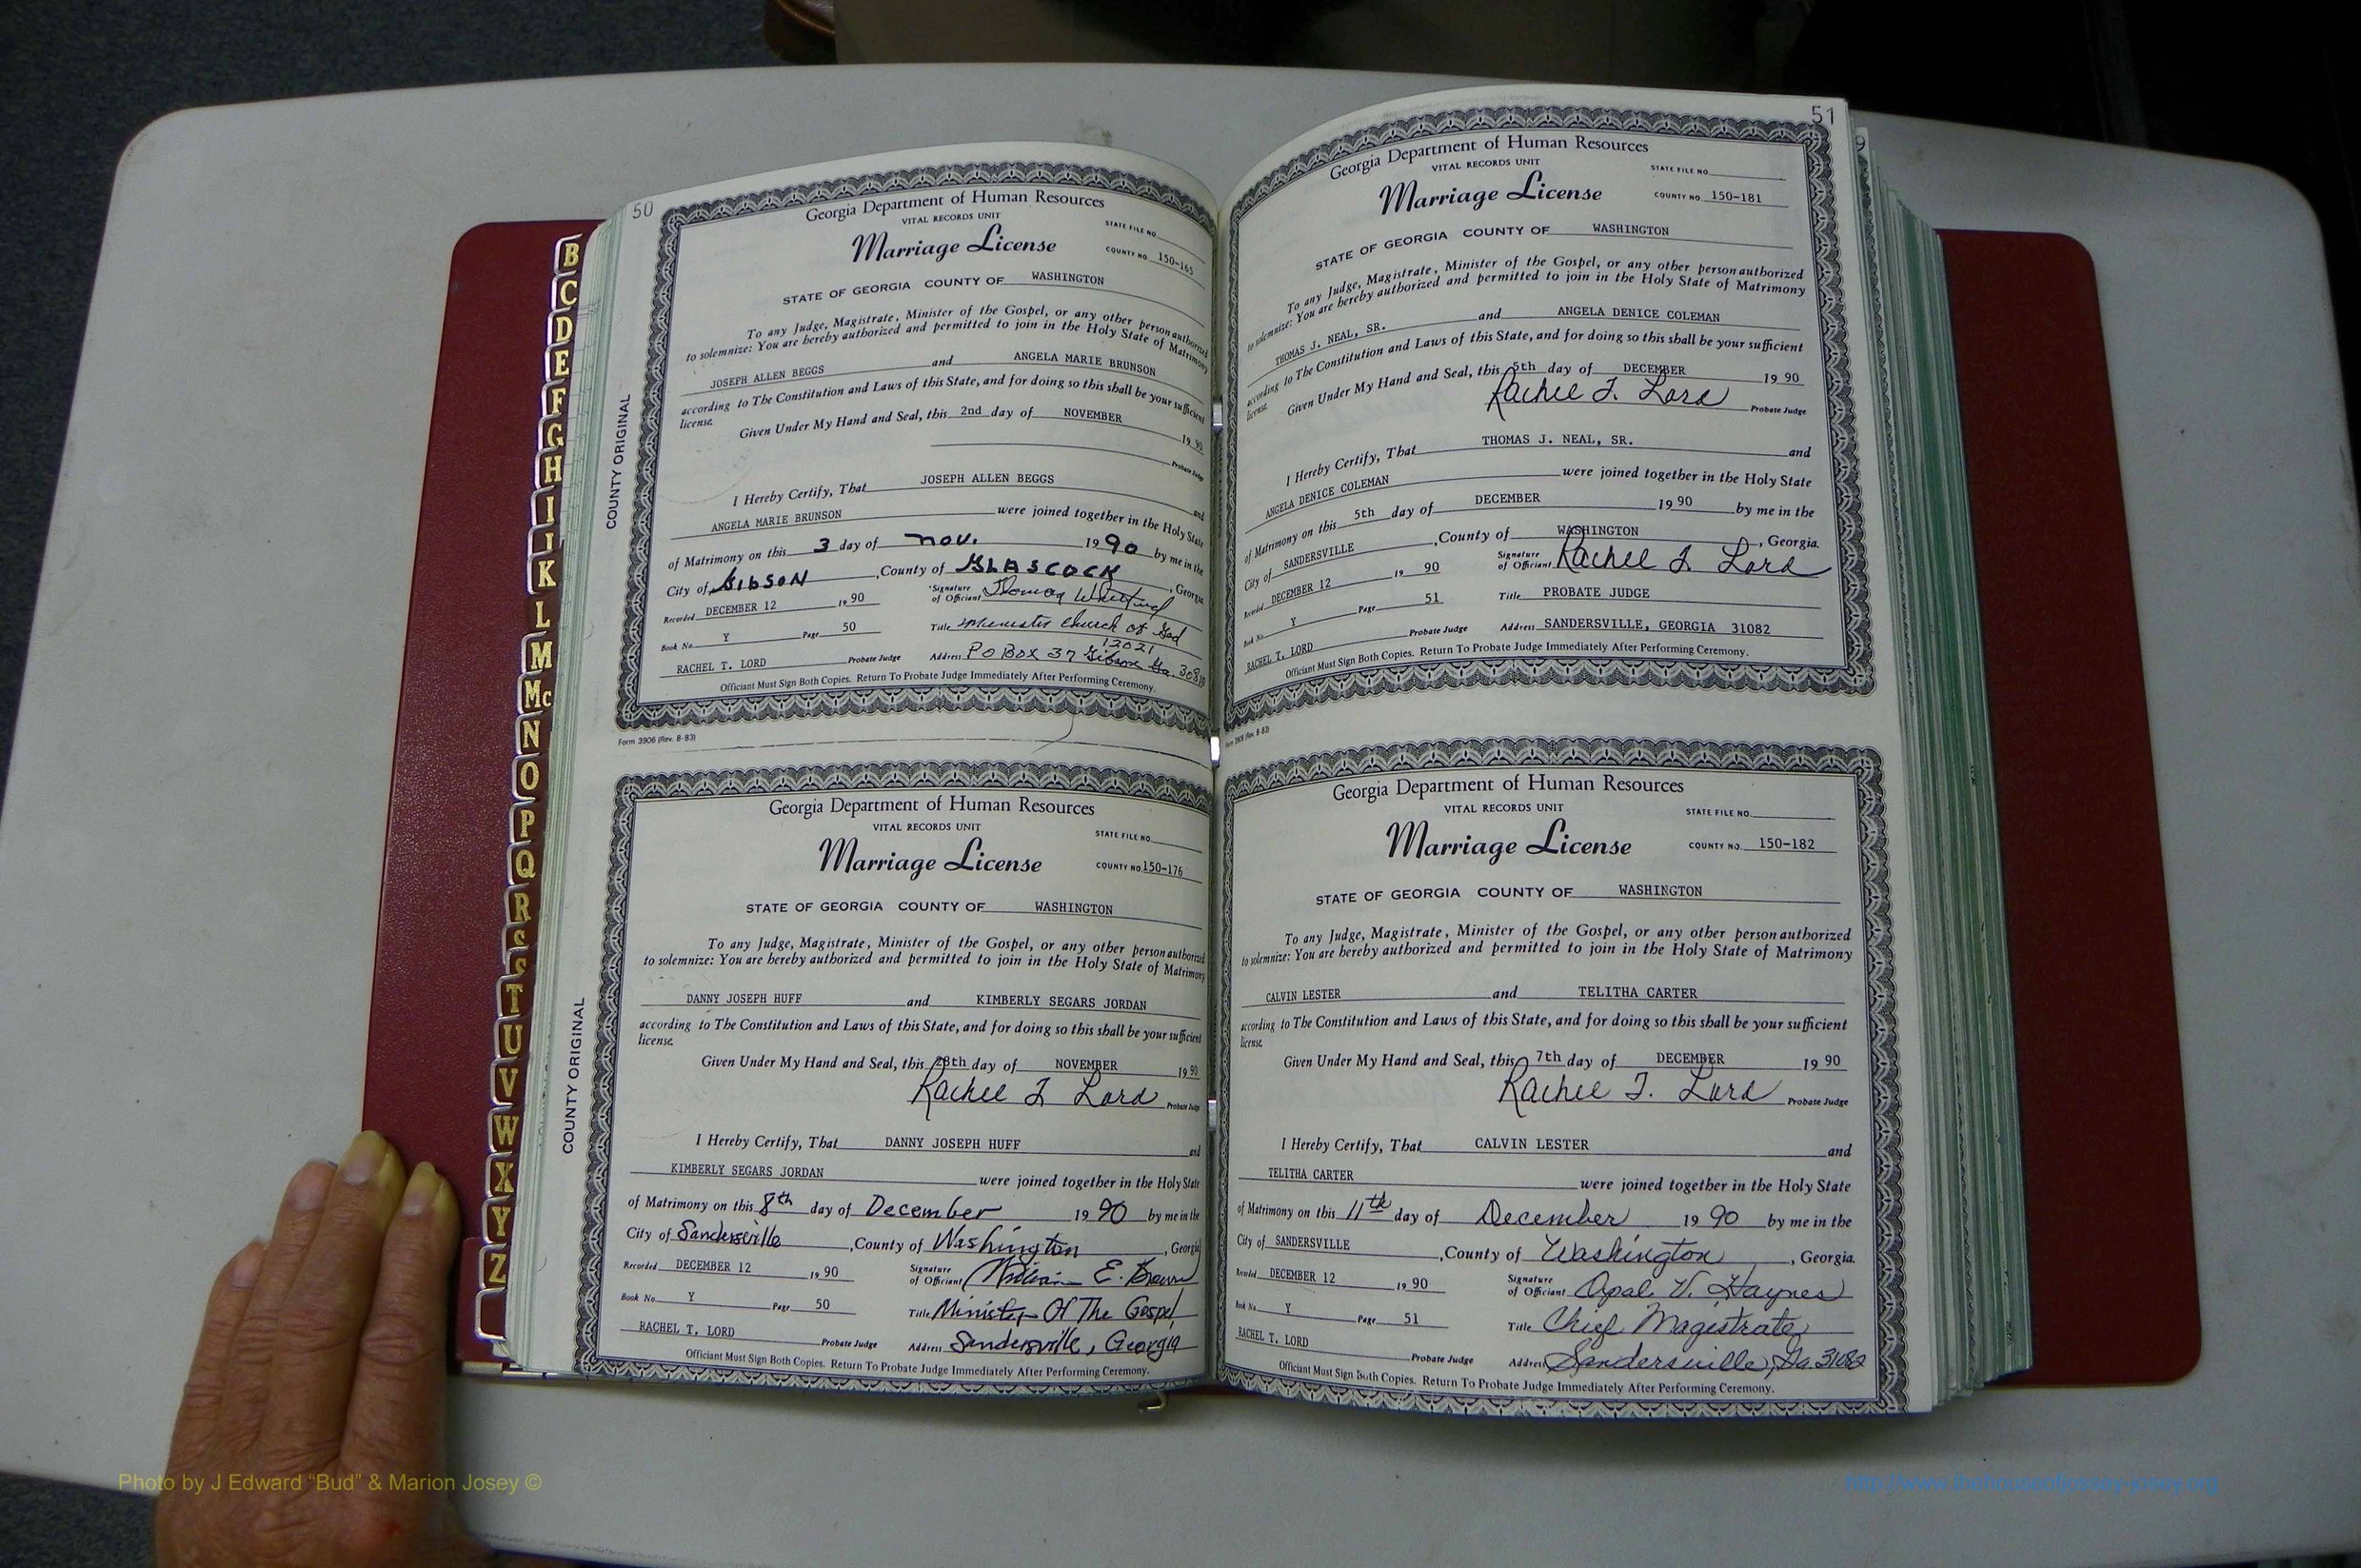 50
COUNTY ORIGINAL
Georgia Department of Human Resources
VITAL RECORDS UNIT
STATE FILE NO.
Marriage License
COUNTY NO. 150-165
STATE OF GEORGIA COUNTY OF WASHINGTON
To any Judge, Magistrate, Minister of the Gospel, or any other person authorized
to solemnize: You are hereby authorized and permitted to join in the Holy State of Matrimony
JOSEPH ALLEN BEGGS and ANGELA MARIE BRUNSON
according to The Constitution and Laws of this State, and for doing so this shall be your sufficient
license.
Given Under My Hand and Seal, this 2nd day of NOVEMBER 19 90
Probate Judge
I Hereby Certify, That JOSEPH ALLEN BEGGS and
ANGELA MARIE BRUNSON were joined together in the Holy State
of Matrimony on this 3 day of nov. 19 90 by me in the
City of GIBSON, County of GLASCOCK, Georgia
Recorded DECEMBER 12 19 90 Signature of Officiant Thomas
Book No. Y Page 50 Title Minister Church of God
12021
RACHEL T. LORD Probate Judge Address PO Box 37 Gibson Ga.
Officiant Must Sign Both Copies. Return To Probate Judge Immediately After Performing Ceremony.
Form 3906 (Rev. 8-83)
COUNTY ORIGINAL
Georgia Department of Human Resources
VITAL RECORDS UNIT
STATE FILE NO.
Marriage License
COUNTY NO. 150-176
STATE OF GEORGIA COUNTY OF WASHINGTON
To any Judge, Magistrate, Minister of the Gospel, or any other person authorized
to solemnize: You are hereby authorized and permitted to join in the Holy State of Matrimony
DANNY JOSEPH HUFF and KIMBERLY SEGARS JORDAN
according to The Constitution and Laws of this State, and for doing so this shall be your sufficient
license.
Given Under My Hand and Seal, this 28th day of NOVEMBER 19 90
Rachel T Lord Probate Judge
I Hereby Certify, That DANNY JOSEPH HUFF and
KIMBERLY SEGARS JORDAN were joined together in the Holy State
of Matrimony on this 8th day of December 19 90 by me in the
City of Sandersville, County of Washington, Georgia
Recorded DECEMBER 12 19 90 Signature of Officiant William E. Brown
Book No. Y Page 50 Title Minister Of The Gospel
RACHEL T. LORD Probate Judge Address Sandersville, Georgia
Officiant Must Sign Both Copies. Return To Probate Judge Immediately After Performing Ceremony.
51
Georgia Department of Human Resources
VITAL RECORDS UNIT
STATE FILE NO.
Marriage License
COUNTY NO. 150-181
STATE OF GEORGIA COUNTY OF WASHINGTON
To any Judge, Magistrate, Minister of the Gospel, or any other person authorized
to solemnize: You are hereby authorized and permitted to join in the Holy State of Matrimony
THOMAS J. NEAL, SR. and ANGELA DENICE COLEMAN
according to The Constitution and Laws of this State, and for doing so this shall be your sufficient
license.
Given Under My Hand and Seal, this 5th day of DECEMBER 19 90
Rachel T. Lord Probate Judge
I Hereby Certify, That THOMAS J. NEAL, SR. and
ANGELA DENICE COLEMAN were joined together in the Holy State
of Matrimony on this 5th day of DECEMBER 19 90 by me in the
City of SANDERSVILLE, County of WASHINGTON, Georgia.
Recorded DECEMBER 12 19 90 Signature of Officiant Rachel T. Lord
Book No. Y Page 51 Title PROBATE JUDGE
RACHEL T. LORD Probate Judge Address SANDERSVILLE, GEORGIA 31082
Officiant Must Sign Both Copies. Return To Probate Judge Immediately After Performing Ceremony.
Form 3906 (Rev. 8-83)
Georgia Department of Human Resources
VITAL RECORDS UNIT
STATE FILE NO.
Marriage License
COUNTY NO. 150-182
STATE OF GEORGIA COUNTY OF WASHINGTON
To any Judge, Magistrate, Minister of the Gospel, or any other person authorized
to solemnize: You are hereby authorized and permitted to join in the Holy State of Matrimony
CALVIN LESTER and TELITHA CARTER
according to The Constitution and Laws of this State, and for doing so this shall be your sufficient
license.
Given Under My Hand and Seal, this 7th day of DECEMBER 19 90
Rachel T. Lord Probate Judge
I Hereby Certify, That CALVIN LESTER and
TELITHA CARTER were joined together in the Holy State
of Matrimony on this 11th day of December 19 90 by me in the
City of SANDERSVILLE, County of Washington, Georgia.
Recorded DECEMBER 12 19 90 Signature of Officiant Opal V. Haynes
Book No. Y Page 51 Title Chief Magistrate
RACHEL T. LORD Probate Judge Address Sandersville, Ga. 31082
Officiant Must Sign Both Copies. Return To Probate Judge Immediately After Performing Ceremony.
B
C
D
E
F
G
H
I
J
K
L
M
Mc
N
O
P
Q
R
S
S
T
U
V
W
X
Y
Z
Photo by J Edward "Bud" & Marion Josey ©